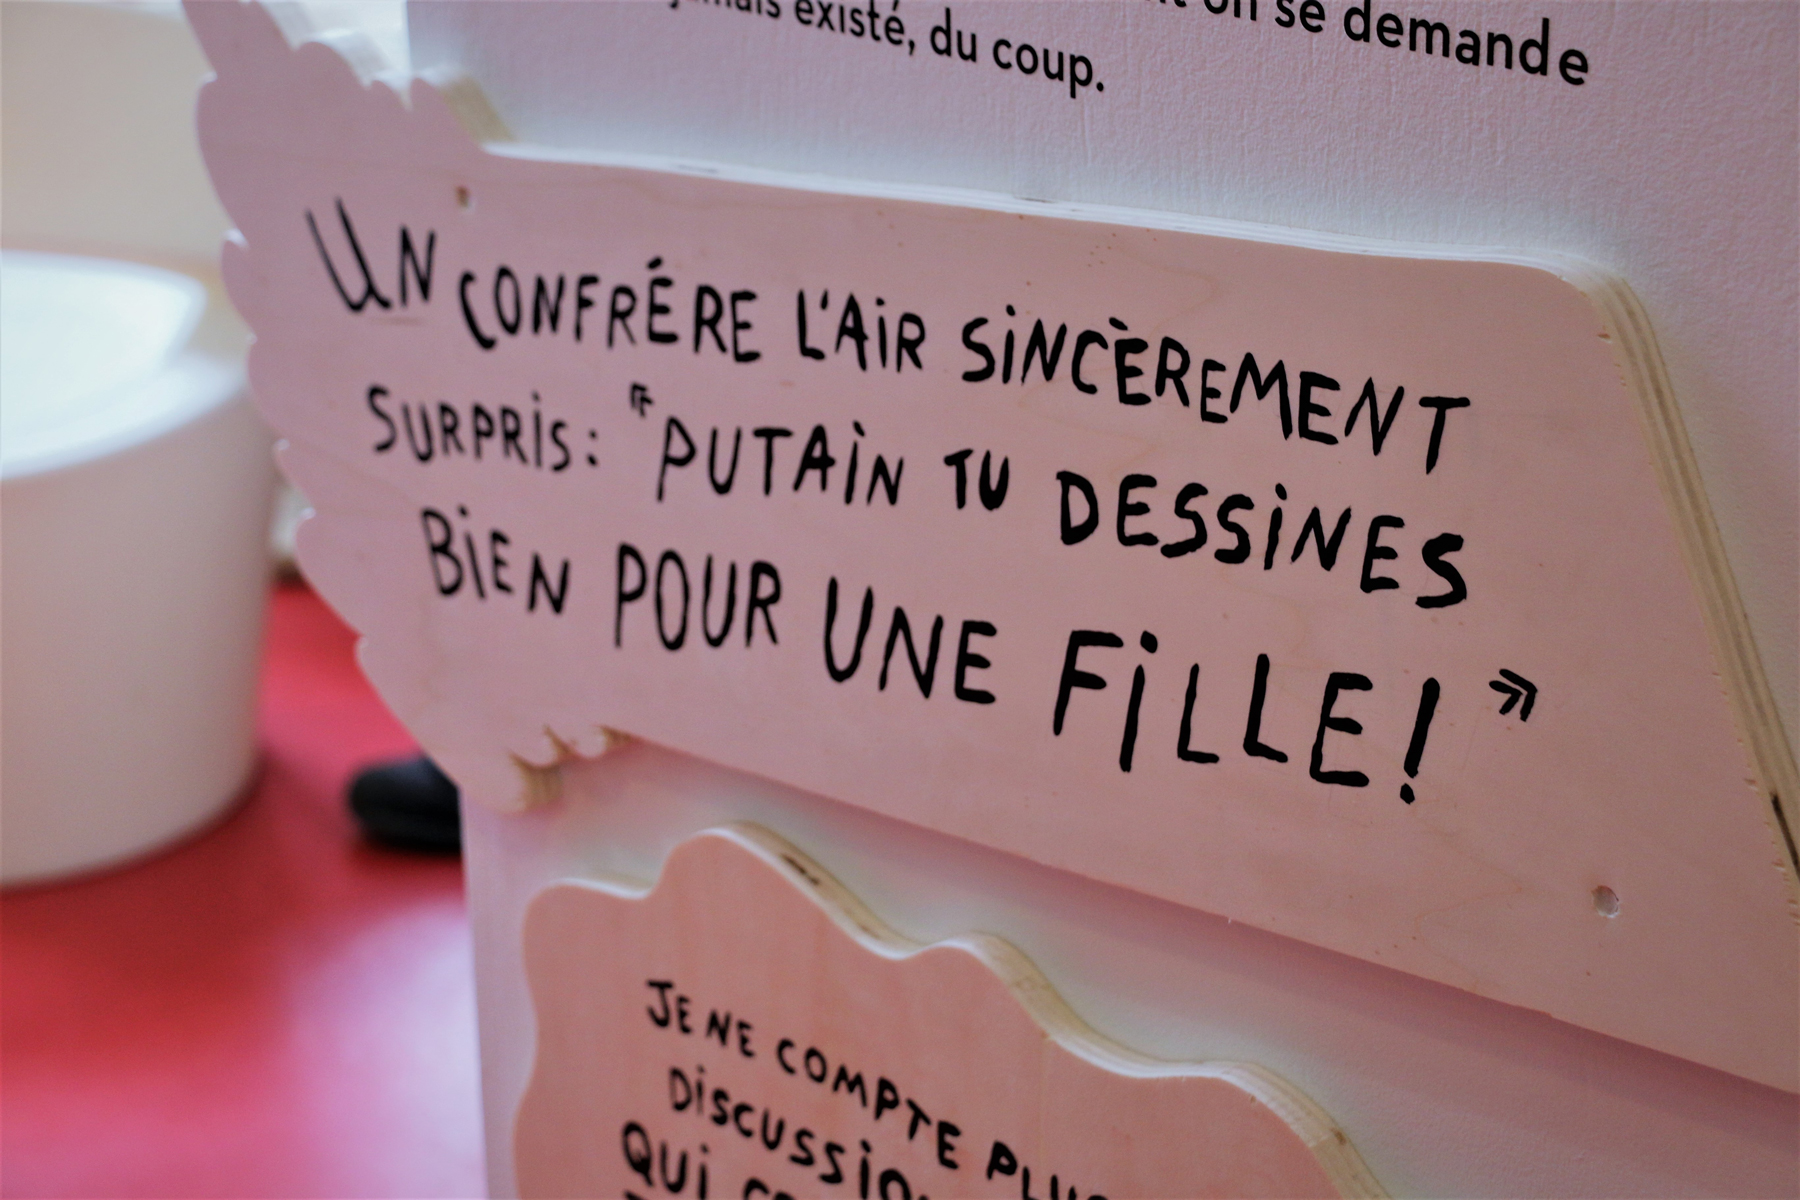 on se demande
existé, du coup.
UN CONFRÉRE L'AIR SINCÈREMENT
SURPRIS: "PUTAIN TU DESSINES
BIEN POUR UNE FILLE! »
JE NE COMPTE PLUS
QUI